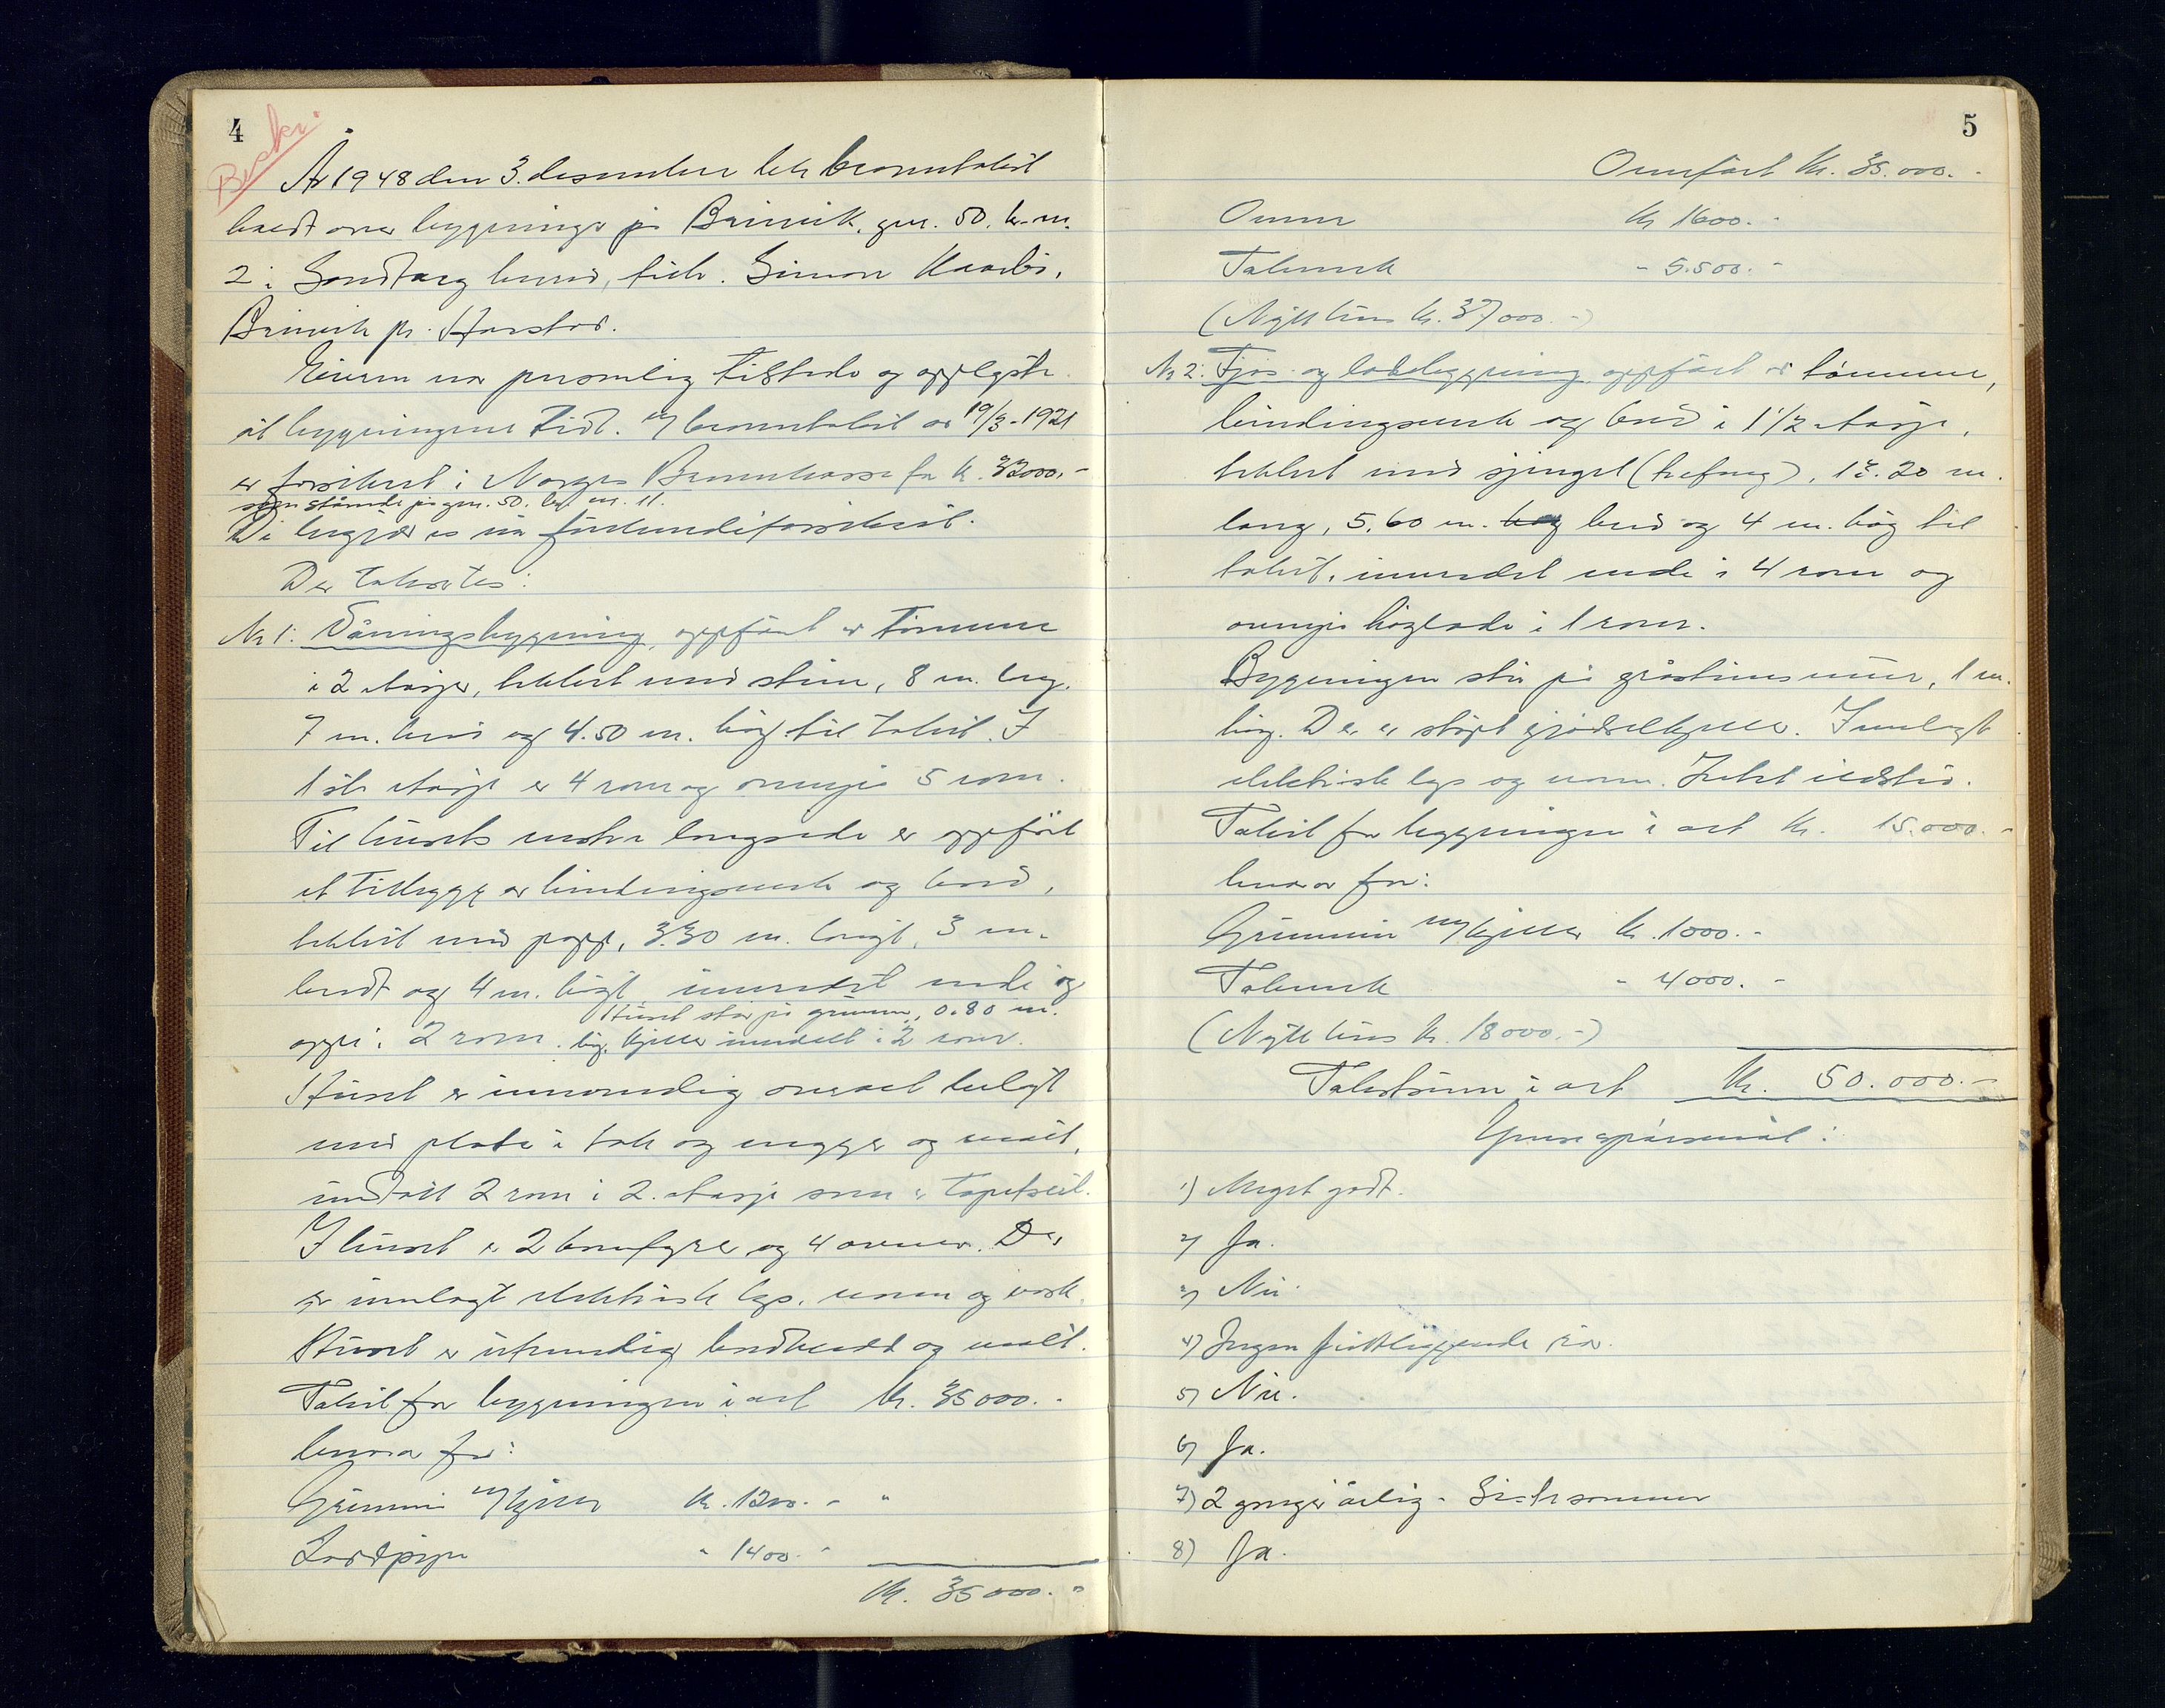 4
Beskr.
År 1948 den 3. desember ble branntakst
holdt over bygninger på Brinvik, gnr. 50. br.nr.
2 i Sandtorg herred, tilh. Simon Kaarbø,
Brinvik pr. Harstad.
Eieren var personlig tilstede og opplyste
at bygningene tidl. if branntakst av 19/3-1921
er forsikret i Norges Brannkasse for kr. 32000,-
som stående på gnr. 50. br. nr. 11.
De begjæres nå forsikret.
Der takseres:
Nr 1. Våningsbygning, oppført av tømmer
i 2 etasjer, tekket med stein, 8 m. lang,
7 m. bred og 4.50 m. høg til takst. I
1ste etasje er 4 rom og ovenpå 5 rom.
Til husets østre langside er oppført
et tilbygg av bindingsverk og bord,
tekket med papp, 3.30 m. langt, 3 m.
bredt og 4 m. høgt, innredet nede og
Huset står på grunnm. 0.80 m.
oppe i 2 rom. høg, kjeller inndelt i 2 rom.
Huset er innvendig overalt belagt
med plater i tak og vegger og malt,
unntatt 2 rom i 2. etasje som er tapetsert.
I huset er 2 komfyrer og 4 ovner. Der
er innlagt elektrisk lys, varme og vask.
Huset er utvendig bordkledd og malt.
Takst for bygningen i alt kr. 35000.-
herav for:
Grunnmur m/kjeller kr. 1200.- "
Loddpipe " 1400.-
Kr. 35000.-
5
Overført kr. 35.000.-
Ovner kr 1600.-
Takverk - 5.500.-
(Nytt hus kr. 37000.-)
Nr 2. Fjøs- og låvebygning, oppført av tømmer,
bindingsverk og bord i 1 1/2 etasje,
tekket med sjingel (trefang), 12.20 m.
lang, 5,60 m. høg bred og 4 m. høg til
takst, innredet nede i 4 rom og
ovenpå høylade i 1 rom.
Bygningen står på gråsteinsmur, 1 m.
høg. Der er støpt gjødselkjeller. Innlagt
elektrisk lys og vann. Intet ildsted.
Takst for bygningen i alt kr. 15.000.-
herav for:
Grunnmur m/kjeller kr. 1000.-
Takverk - 4000.-
(Nytt hus kr. 18000.-)
Takstsum i alt kr. 50.000.-
spørsmål:
1) Meget godt.
2) Ja.
3) Nei
4) Ingen rør.
5) Nei.
6) Ja.
7) 2 ganger årlig -
8) Ja.